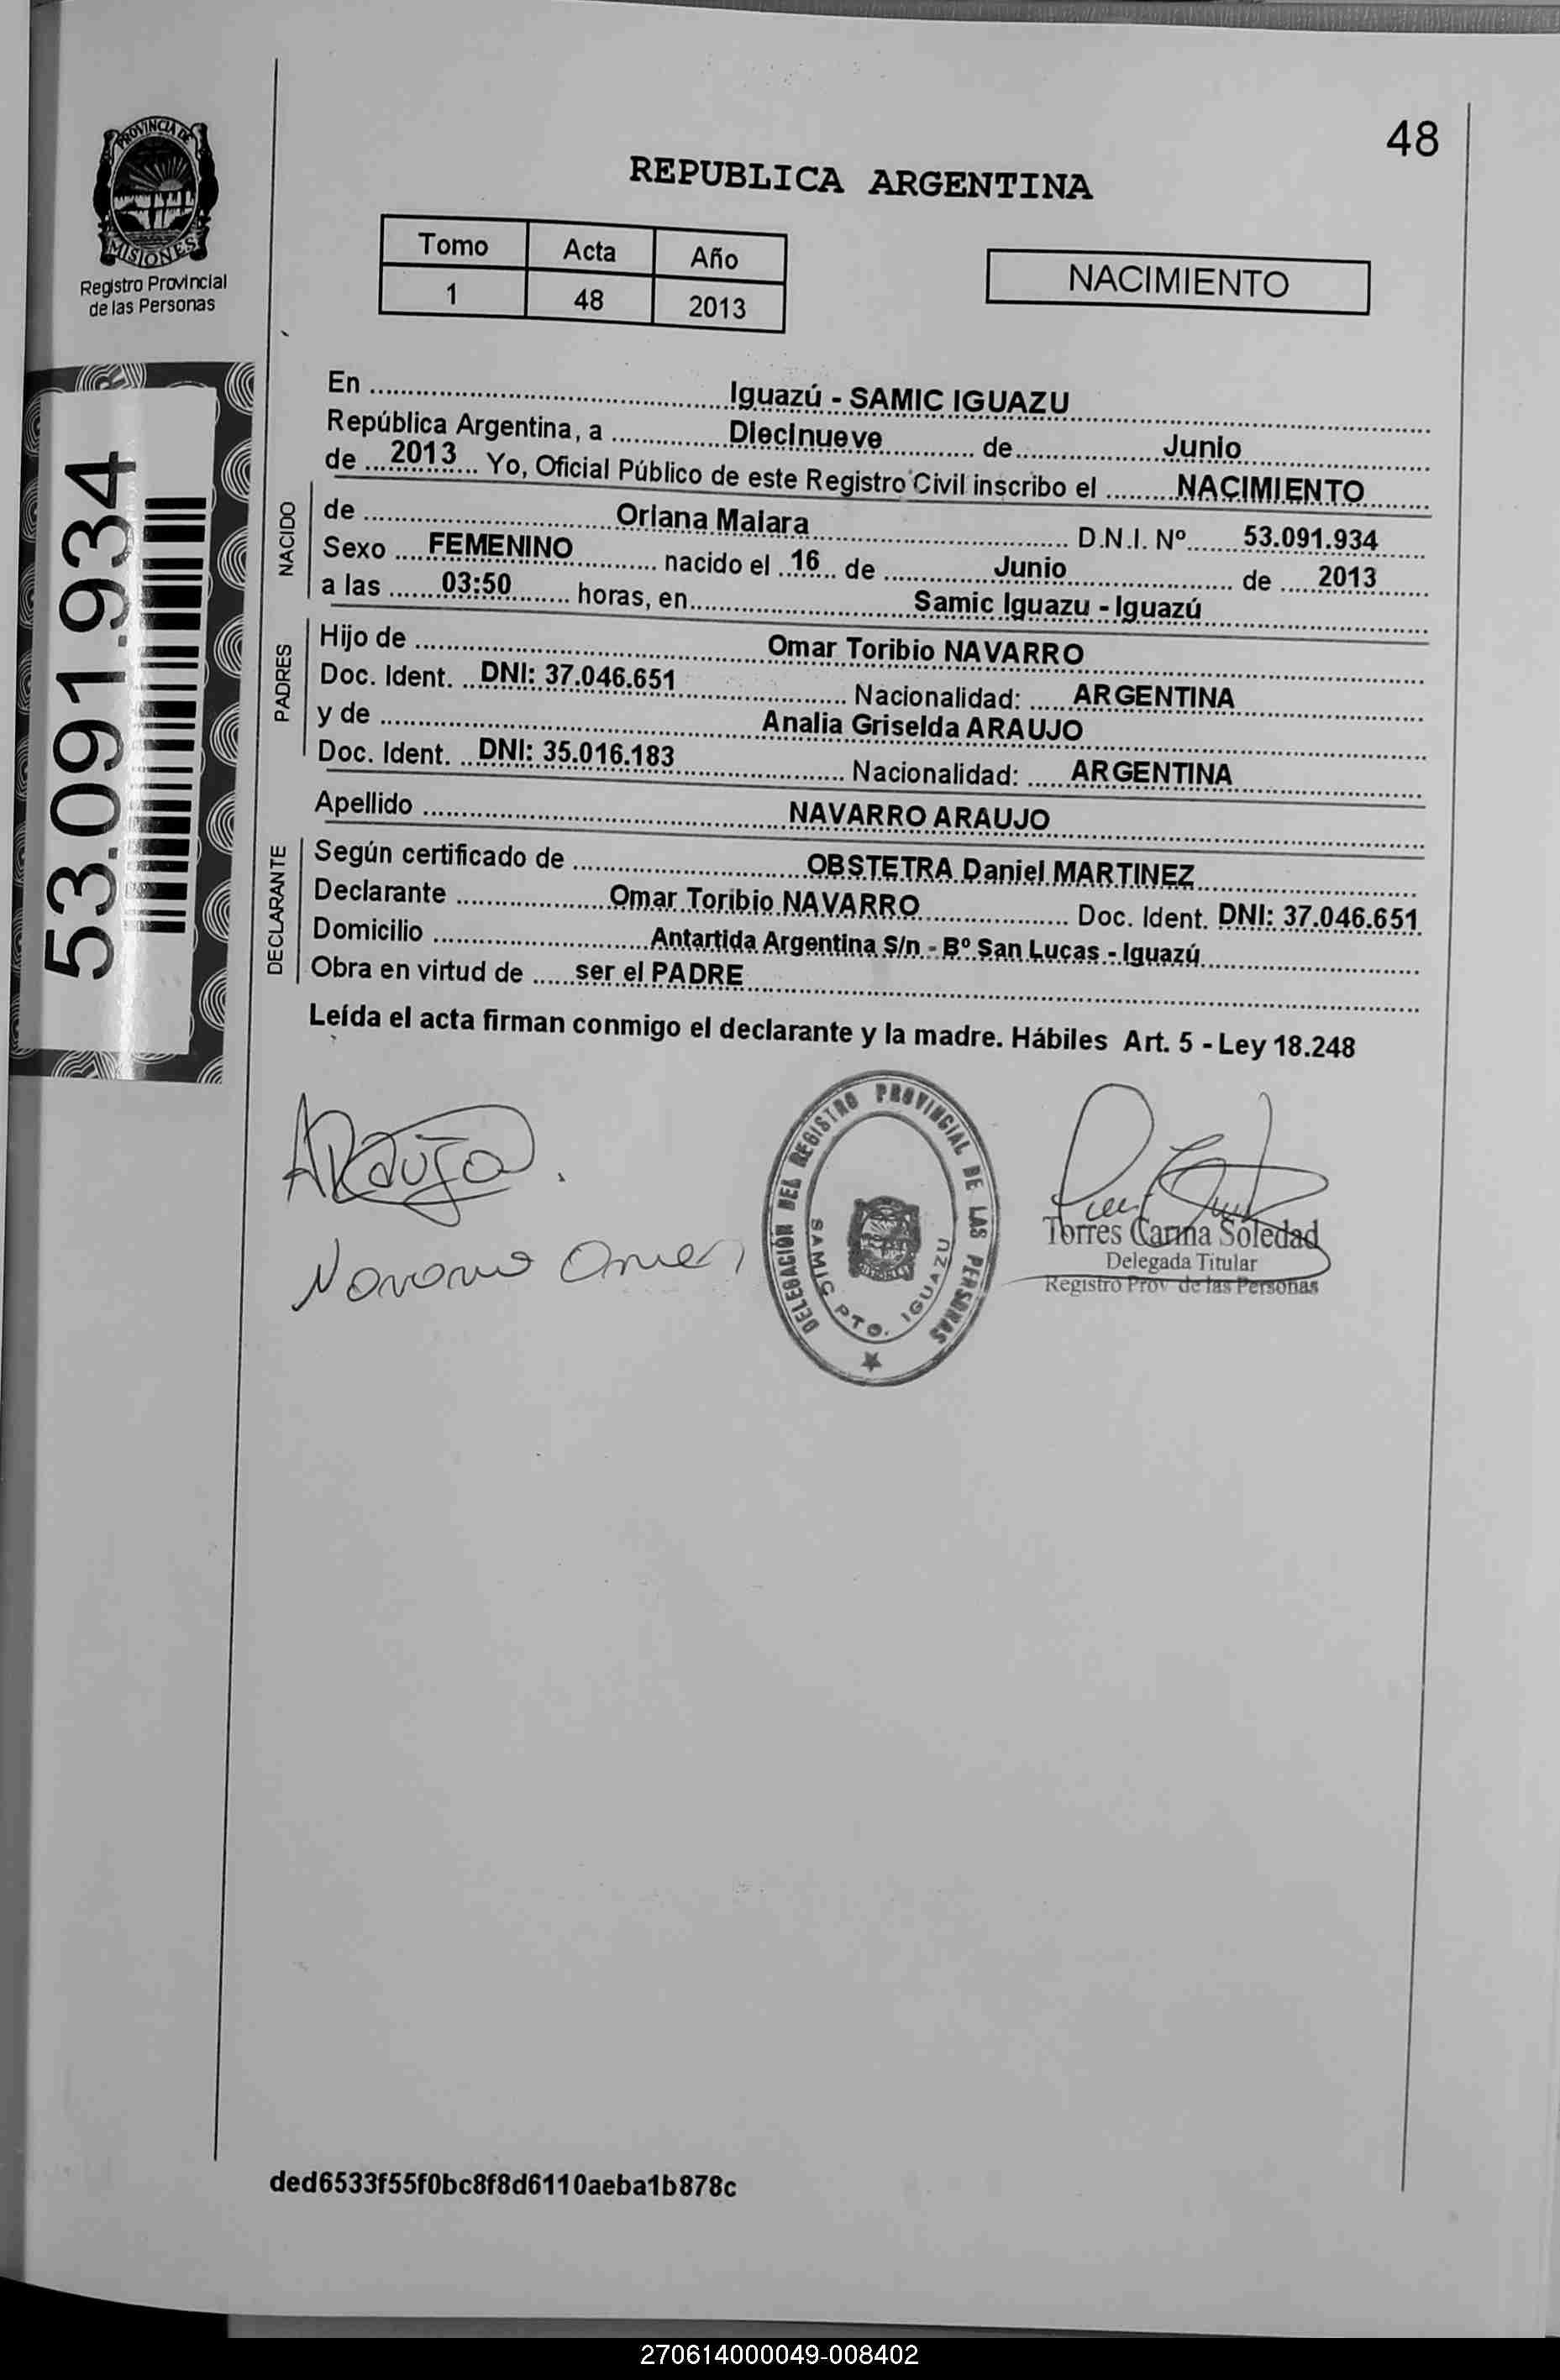 48
PROVINCIA DE
MISIONES
Registro Provincial
de las Personas
REPUBLICA ARGENTINA
Tomo Acta Año
1 48 2013
NACIMIENTO
53.091.934
En Iguazú - SAMIC IGUAZU
República Argentina, a Diecinueve de Junio
de 2013 Yo, Oficial Público de este Registro Civil inscribo el NACIMIENTO
NACIDO
de Oriana Maiara D.N.I. Nº 53.091.934
Sexo FEMENINO nacido el 16 de Junio de 2013
a las 03:50 horas, en Samic Iguazu - Iguazú
PADRES
Hijo de Omar Toribio NAVARRO
Doc. Ident. DNI: 37.046.651 Nacionalidad: ARGENTINA
y de Analia Griselda ARAUJO
Doc. Ident. DNI: 35.016.183 Nacionalidad: ARGENTINA
Apellido NAVARRO ARAUJO
DECLARANTE
Según certificado de OBSTETRA Daniel MARTINEZ
Declarante Omar Toribio NAVARRO Doc. Ident. DNI: 37.046.651
Domicilio Antartida Argentina S/n - Bº San Lucas - Iguazú
Obra en virtud de ser el PADRE
Leída el acta firman conmigo el declarante y la madre. Hábiles Art. 5 - Ley 18.248
ARaujo
Navarro Omar
DELEGACIÓN DEL REGISTRO PROVINCIAL DE LAS PERSONAS
SAMIC PTO. IGUAZU
Torres Carina Soledad
Delegada Titular
Registro Prov de las Personas
ded6533f55f0bc8f8d6110aeba1b878c
270614000049-008402